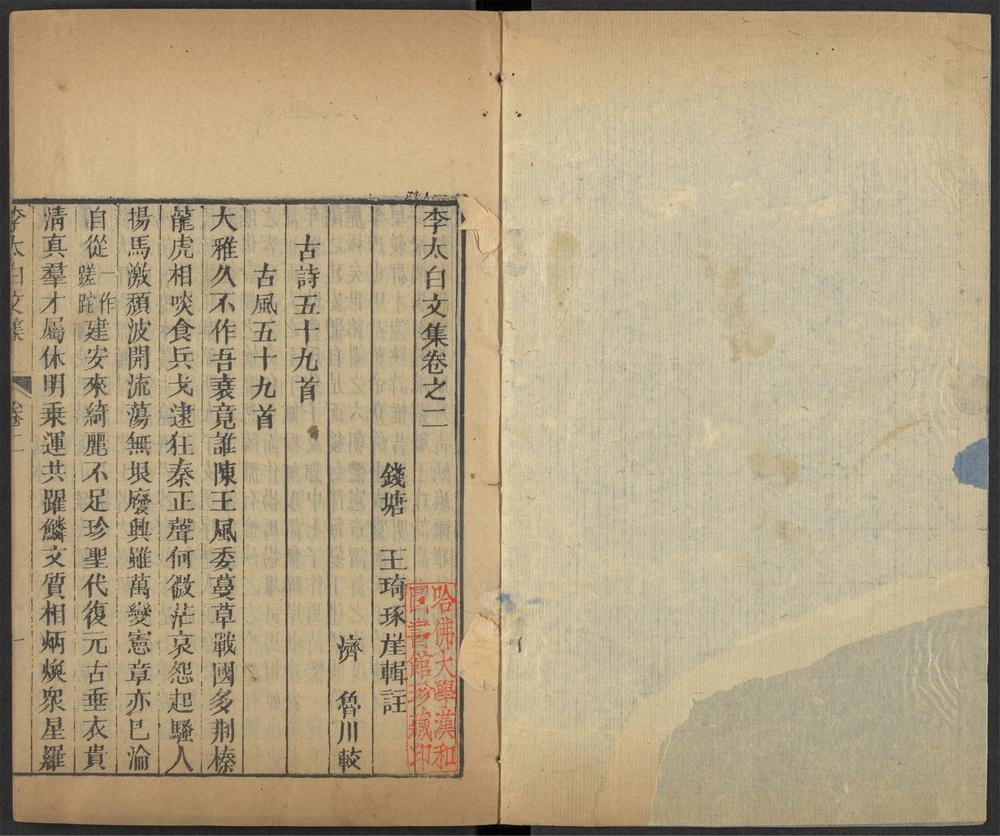 李太白文集卷之二
錢塘 王琦琢崖輯註
濟 魯川較
古詩五十九首
古風五十九首
大雅久不作吾衰竟誰陳王風委蔓草戰國多荆榛
龍虎相啖食兵戈逮狂秦正聲何微茫哀怨起騷人
揚馬激頹波開流蕩無垠廢興雖萬變憲章亦已淪
自從一作蹉跎建安來綺麗不足珍聖代復元古垂衣貴
清真羣才屬休明乗運共躍鱗文質相炳煥衆星羅
李太白文集 卷二 一
哈佛大學漢和
圖書館珍藏印